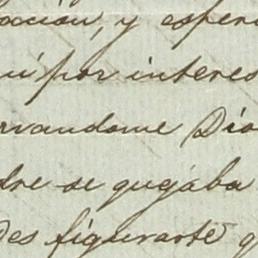 ación, y esper
uí por interes
rvandome Dio
dre se quejaba
des figurarte q